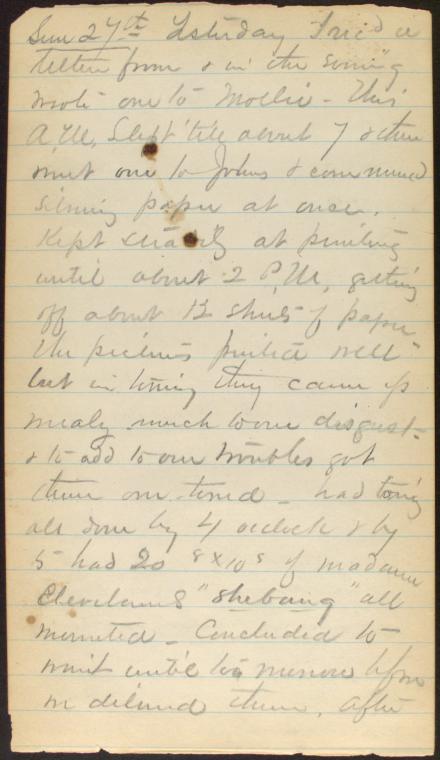 Sun 27th Yesterday Fried a
letter from & in the evening
wrote one to Mollie - This
A.M. Slept till about 7 & then
went over to Johns & commenced
silvering paper at once.
Kept steadily at printing
until about 2 P.M. getting
off about 12 sheets of paper
The pictures printed well
but in toning they came up
mealy much to our disgust -
& to add to our troubles got
them over toned - had toning
all done by 4 oclock & by
5 had 20 8x10s of madame
Cleveland's "shebang" all
mounted - Concluded to
wait until to morrow before
we delivered them. After